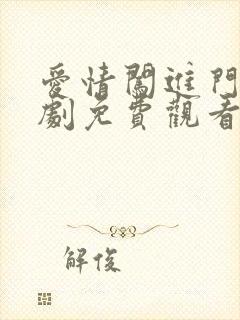 愛情闖進門
劇免費觀看
解俊